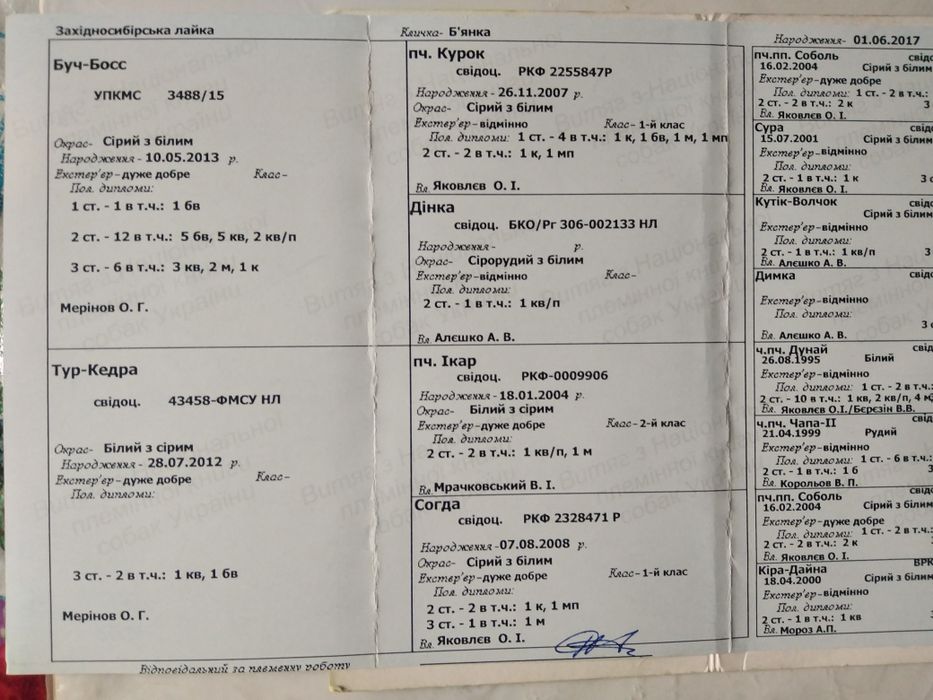 Західносибірська лайка
Кличка- Б'янка
Народження- 01.06.2017
Буч-Босс
УПКМС 3488/15
Окрас- Сірий з білим
Народження - 10.05.2013 р.
Екстер'ер-дуже добре Клас-
Пол. дипломи:
1 ст. - 1 в т.ч.: 1 бв
2 ст. - 12 в т.ч.: 5 бв, 5 кв, 2 кв/п
3 ст. - 6 в т.ч.: 3 кв, 2 м, 1 к
Мерінов О. Г.
Тур-Кедра
свідоц. 43458-ФМСУ НЛ
Окрас- Білий з сірим
Народження - 28.07.2012 р.
Екстер'ер-дуже добре Клас-
Пол. дипломи:
3 ст. - 2 в т.ч.: 1 кв, 1 бв
Мерінов О. Г.
Відповідальний за племінну роботу
пч. Курок
свідоц. РКФ 2255847Р
Народження - 26.11.2007 р.
Окрас- Сірий з білим
Екстер'ер-відмінно Клас- 1-й клас
Пол. дипломи: 1 ст. - 4 в т.ч.: 1 к, 1 бв, 1 м, 1 мп
2 ст. - 2 в т.ч.: 1 к, 1 мп
Вл. Яковлєв О. І.
Дінка
свідоц. БКО/Рг 306-002133 НЛ
Народження - р.
Окрас- Сірорудий з білим
Екстер'ер-відмінно Клас-
Пол. дипломи:
2 ст. - 1 в т.ч.: 1 кв/п
Вл. Алєшко А. В.
пч. Ікар
свідоц. РКФ-0009906
Народження - 18.01.2004 р.
Окрас- Білий з сірим
Екстер'ер-дуже добре Клас- 2-й клас
Пол. дипломи:
2 ст. - 2 в т.ч.: 1 кв/п, 1 м
Вл. Мрачковський В. І.
Согда
свідоц. РКФ 2328471 Р
Народження -07.08.2008 р.
Окрас- Сірий з білим
Екстер'ер-дуже добре Клас- 1-й клас
Пол. дипломи:
2 ст. - 2 в т.ч.: 1 к, 1 мп
3 ст. - 1 в т.ч.: 1 м
Вл. Яковлєв О. І.
пч.пп. Соболь свідо
16.02.2004 Сірий з білим
Екстер'ер-дуже добре
Пол. дипломи: 1 ст. - 2 в т.ч.:
2 ст. - 2 в т.ч.: 2 к 3
Вл. Яковлєв О. І.
Сура свідо
15.07.2001 Сірий з білим
Екстер'ер-відмінно
Пол. дипломи:
2 ст. - 1 в т.ч.: 1 к 3 с
Вл. Яковлєв О. І.
Кутік-Волчок свідо
Сірий з білим
Екстер'ер-відмінно
Пол. дипломи:
2 ст. - 1 в т.ч.: 1 кв/п 3
Вл. Алєшко А. В.
Димка свідо
Екстер'ер-відмінно
Пол. дипломи:
3 с
Вл. Алєшко А. В.
ч.пч. Дунай свід
26.08.1995 Білий
Екстер'ер-відмінно
Пол. дипломи: 1 ст. - 2 в т.ч.:
2 ст. - 10 в т.ч.: 1 кв, 2 кв/п, 4 м
Вл. Яковлєв О.І./Бєрєзін В.В.
ч.пч. Чапа-ІІ свід
21.04.1999 Рудий
Екстер'ер-відмінно
Пол. дипломи: 1 ст. - 6 в т.ч.:
2 ст. - 1 в т.ч.: 1 б 3
Вл. Корольов В. П.
пч.пп. Соболь свідо
16.02.2004 Сірий з білим
Екстер'ер-дуже добре
Пол. дипломи: 1 ст. - 2 в т.ч.:
2 ст. - 2 в т.ч.: 2 к 3
Вл. Яковлєв О. І.
Кіра-Дайна ВРК
18.04.2000 Сірий з білим
Екстер'ер-відмінно
Пол. дипломи:
2 ст. - 1 в т.ч.: 1 кв 3
Вл. Мороз А.П.